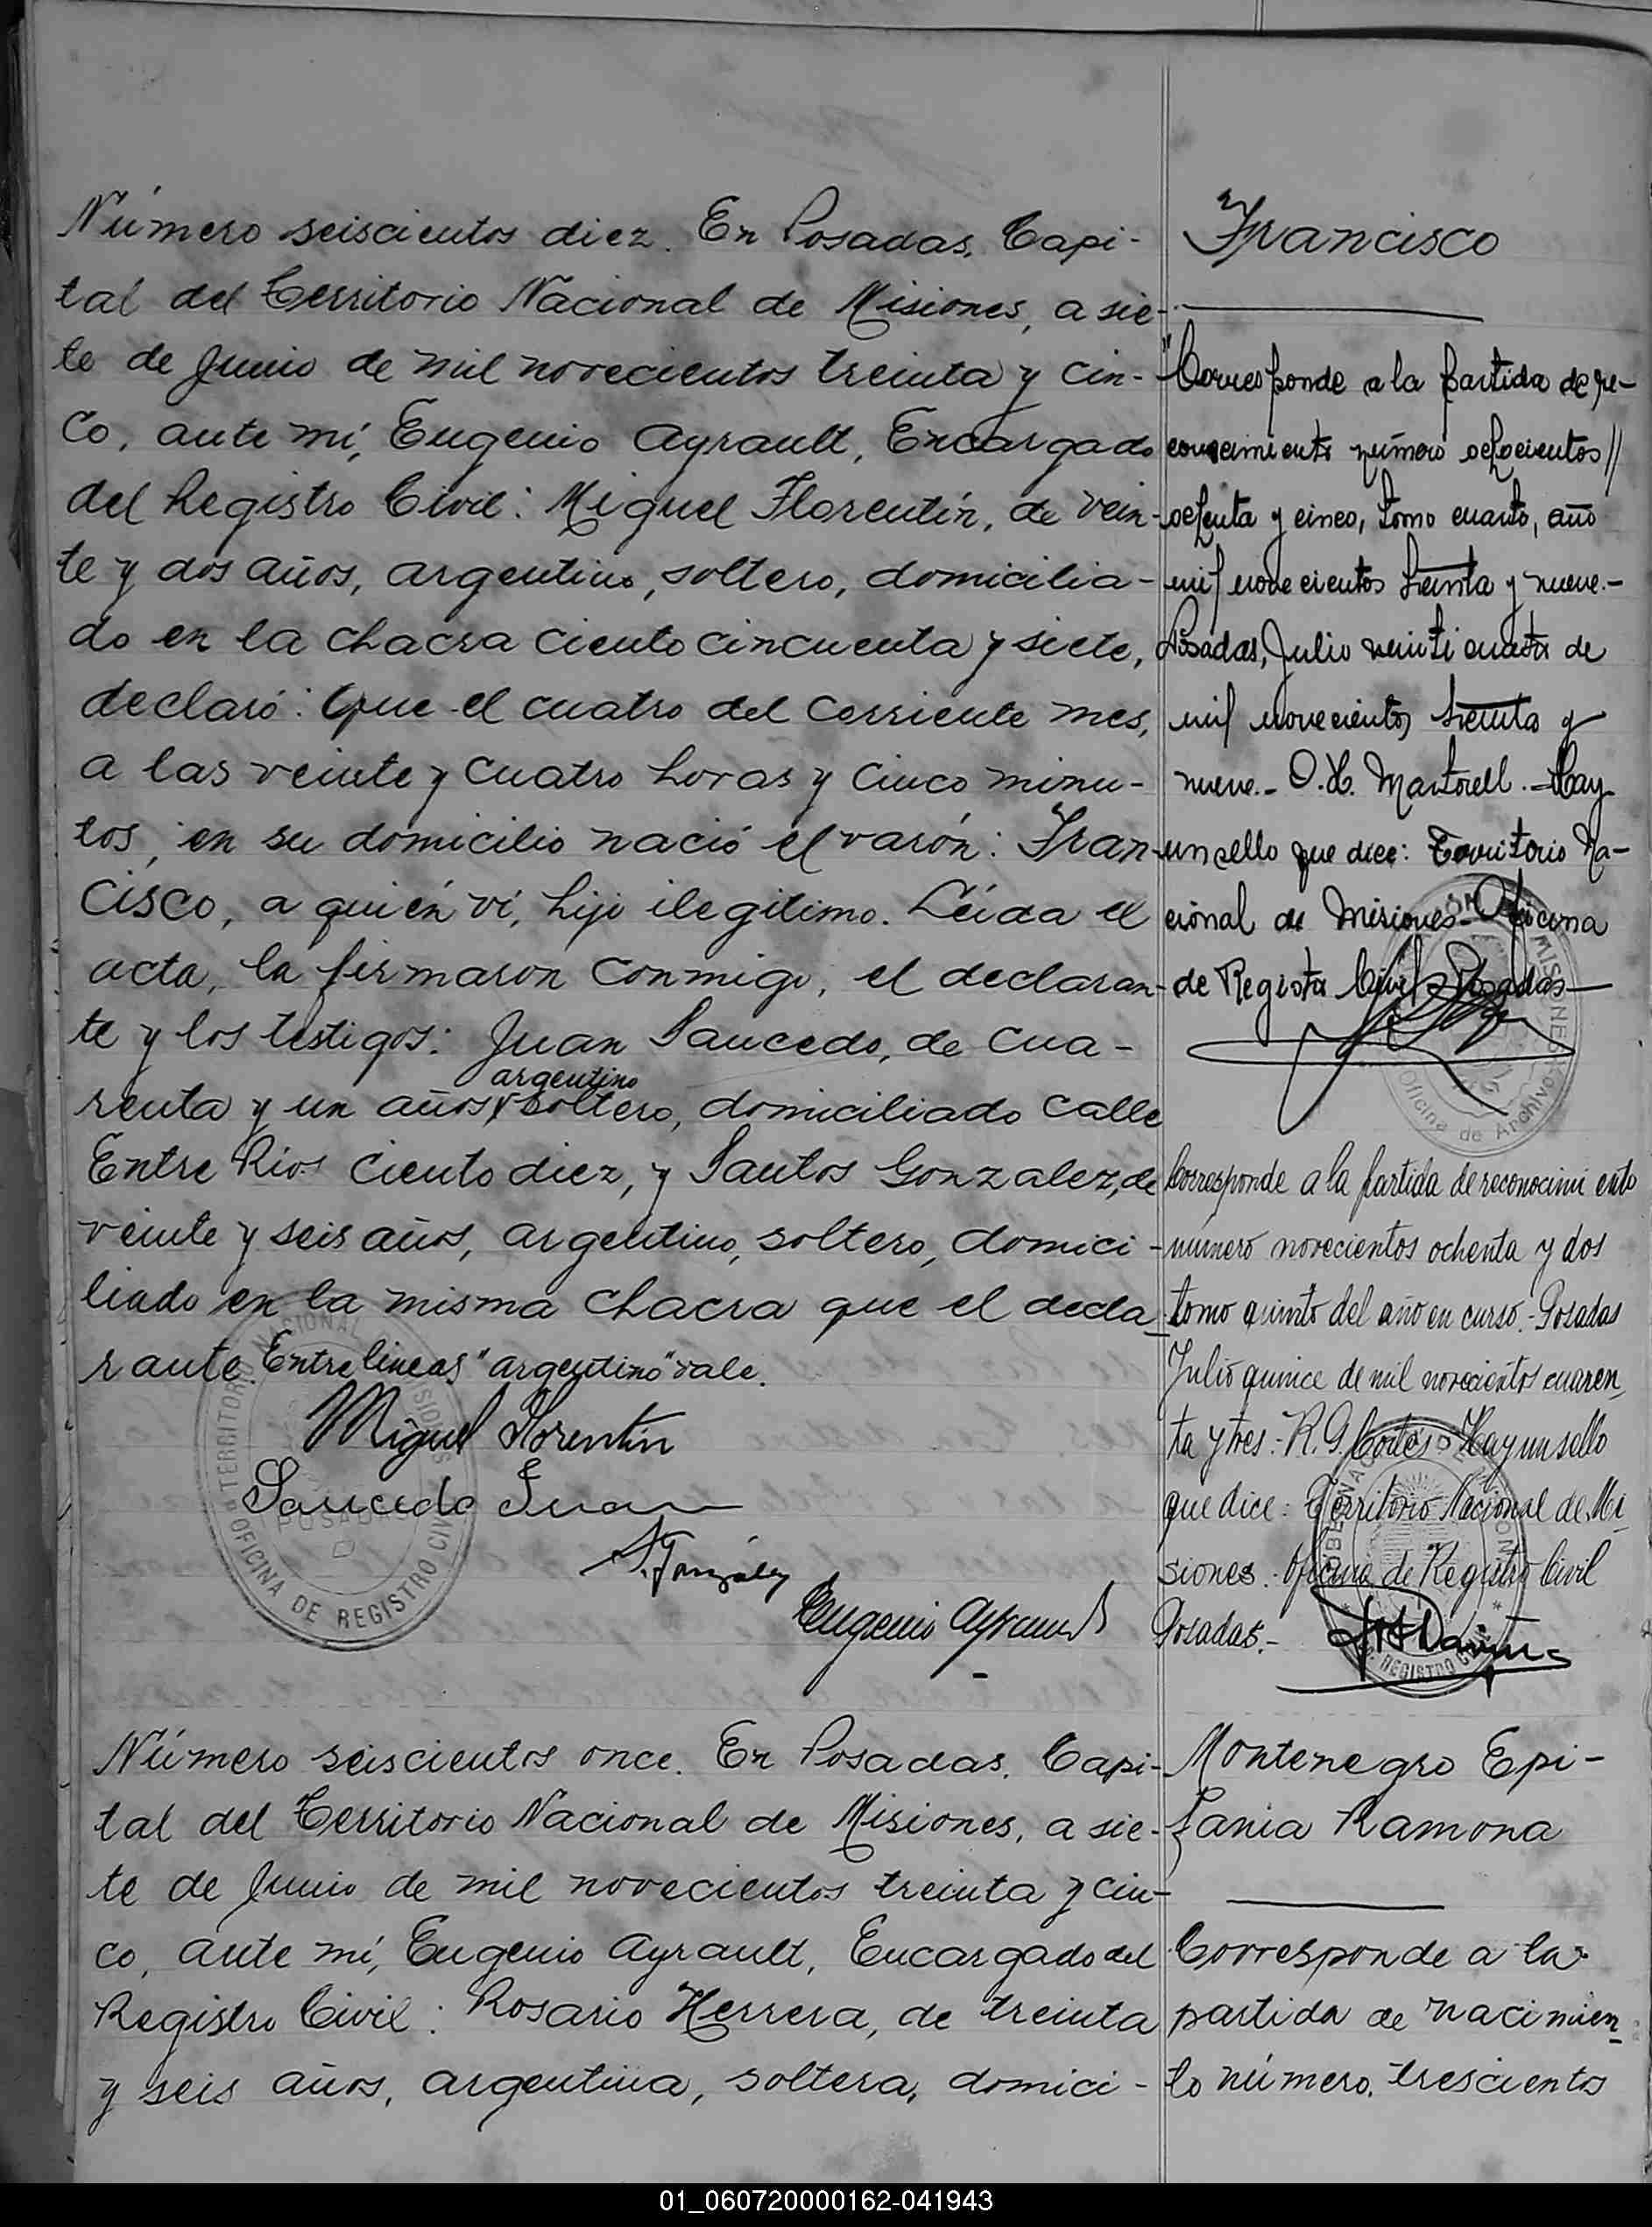 Número seiscientos diez. En Posadas, Capi-
tal del Territorio Nacional de Misiones, a sie-
te de Junio de mil novecientos treinta y cin-
co, ante mí, Eugenio Ayrault, Encargado
del Registro Civil: Miguel Florentín, de vein-
te y dos años, argentino, soltero, domicilia-
do en la chacra ciento cincuenta y siete,
declaró: Que el cuatro del corriente mes,
a las veinte y cuatro horas y cinco minu-
tos, en su domicilio nació el varón: Fran-
cisco, a quién ví, hijo ilegítimo. Leída el
acta, la firmaron conmigo, el declaran-
te y los testigos: Juan Saucedo, de cua-
argentino
renta y un años, soltero, domiciliado calle
Entre Rios ciento diez, y Santos Gonzalez, de
veinte y seis años, argentino, soltero, domici-
liado en la misma chacra que el decla-
rante. Entre lineas "argentino" vale.
Miguel Florentín
Saucedo Juan
S. González
Eugenio Ayrault
TERRITORIO NACIONAL MISIONES
POSADAS
OFICINA DE REGISTRO CIVIL
Francisco
"Corresponde a la partida de re-
conocimiento número ochocientos//
ochenta y cinco, tomo cuarto, año
mil novecientos treinta y nueve.-
Posadas, Julio veinticuatro de
mil novecientos treinta y
nueve.- O.H. Martorell.- Hay
un sello que dice: Territorio Na-
cional de Misiones- Oficina
de Registro Civil- Posadas-
MISIONES
Oficina de Archivo
Corresponde a la partida de reconocimiento
número novecientos ochenta y dos
tomo quinto del año en curso.- Posadas
Julio quince de mil novecientos cuaren
ta y tres.- R. G. Cortés- Hay un sello
que dice: Territorio Nacional de Mi
siones.- Oficina de Registro Civil
Posadas.-
REGISTRO CIVIL
Número seiscientos once. En Posadas, Capi-
tal del Territorio Nacional de Misiones, a sie-
te de Junio de mil novecientos treinta y cin-
co, ante mí, Eugenio Ayrault, Encargado del
Registro Civil: Rosario Herrera, de treinta
y seis años, argentina, soltera, domici-
Montenegro Epi-
fania Ramona
Corresponde a la
partida de nacimien
to número trescientos
01_060720000162-041943